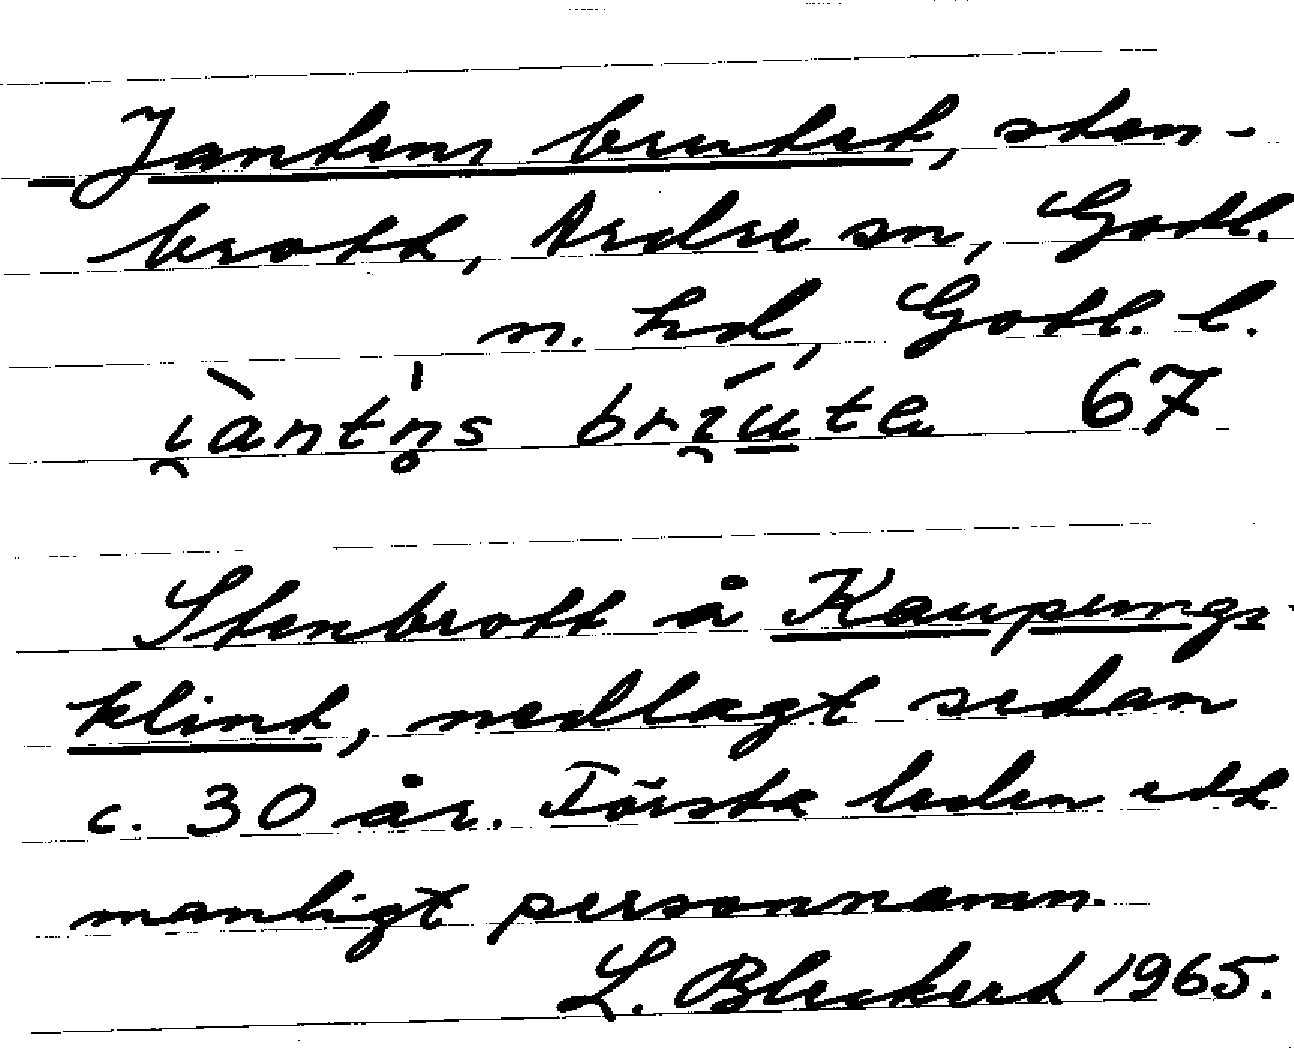 Jantens brutet, sten-
brott, Ardre sn, Gotl.
n. hd, Gotl. l.
i̯àntn̥s bri̯úta 67
Stenbrott å Kaupungs-
klint, nedlagt sedan
c. 30 år. Första leden ett
manligt personnamn.
L. Bleckert 1965.